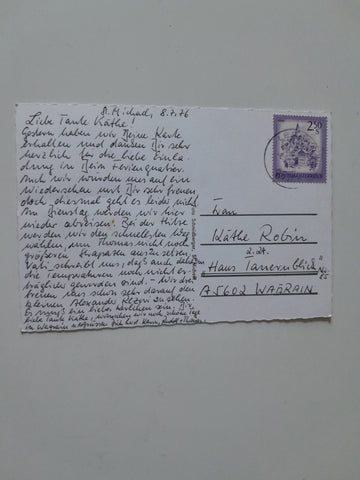 St. Michael, 8.7.76
Liebe Tante Käthe!
Gestern haben wir Deine Karte
erhalten und danken Dir sehr
herzlich für die liebe Einla-
dung in Dein Ferienquartier.
Auch wir würden uns auf ein
Wiedersehen mit Dir sehr freuen
doch diesmal geht es leider nicht.
Am Dienstag werden wir hier
wieder abreisen. Bei der Hitze
werden wir den schnellsten Weg
wählen, um Thomas nicht noch
größeren Strapazen auszusetzen.
Vati schreibt uns, daß auch daheim
die Temperaturen noch nicht er-
träglicher geworden sind. - Wir
freuen uns schon sehr darauf den
kleinen Alexander zu sehen.
Es muß ein lieber
liebe Tante Käthe, wünschen wir noch schöne Tage
in Wagrain u.
2.50
Frau
Käthe Robin
z.Zt.
"Haus Tauernblick"
A5602 WAGRAIN